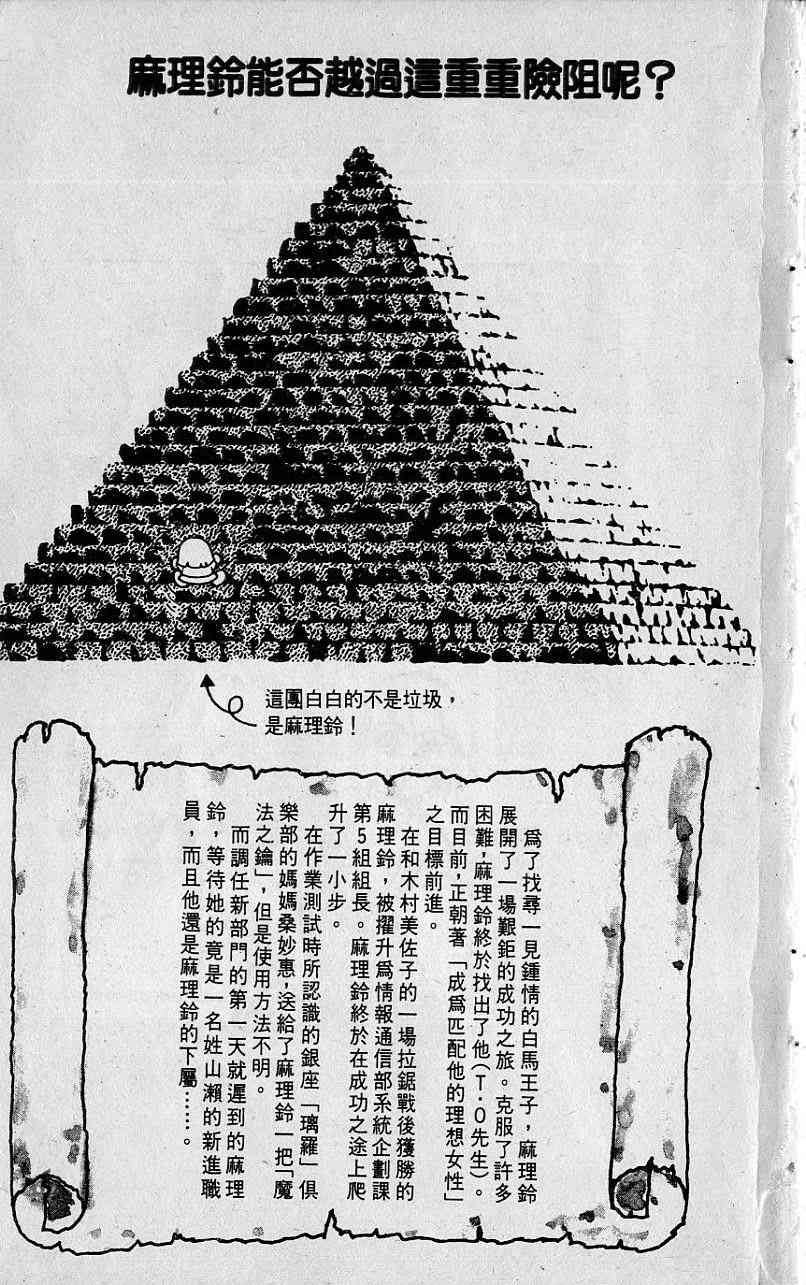 麻理鈴能否越過這重重險阻呢？
這團白白的不是垃圾，
是麻理鈴！
爲了找尋一見鍾情的白馬王子，麻理鈴
展開了一場艱鉅的成功之旅。克服了許多
困難，麻理鈴終於找出了他（T·O先生）。
而目前，正朝著「成爲匹配他的理想女性」
之目標前進。
在和木村美佐子的一場拉鋸戰後獲勝的
麻理鈴，被擢升爲情報通信部系統企劃課
第5組組長。麻理鈴終於在成功之途上爬
升了一小步。
在作業測試時所認識的銀座「璃羅」俱
樂部的媽媽桑妙惠，送給了麻理鈴一把「魔
法之鑰」，但是使用方法不明。
而調任新部門的第一天就遲到的麻理
鈴，等待她的竟是一名姓山瀨的新進職
員，而且他還是麻理鈴的下屬……。